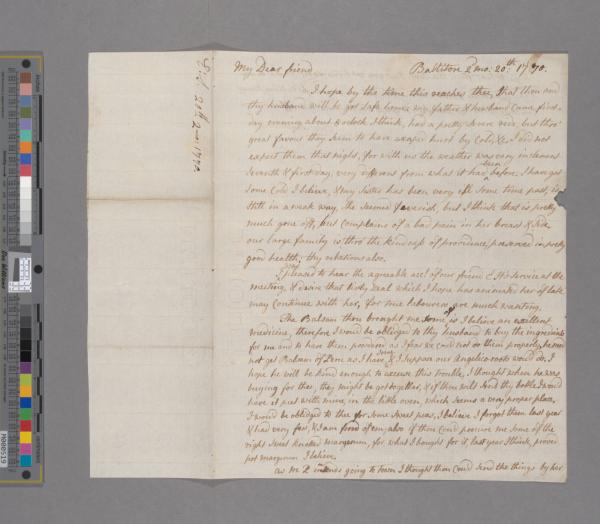 My Dear friend Ballitore 2 mo: 20th 1790.
I hope by the time this reaches thee, that thou and
thy husband will be got safe home; my father & husband came first-
day evening about 8 o'clock I think, had a pretty severe ride, but thro'
great favour they seem to have escaped hurt by Cold, &c. I did not
expect them that night, for with us the weather was very inclement
seventh & first day, very different from what it had been before. I have got
some Cold I believe, & my Sister has been very ill some time past, is
still in a weak way, she seemed feverish, but I think that is pretty
much gone off, but complains of a bad pain in her breast & side
our large family is thro the kindness of providence preserved in pretty
good health; thy relations also.
I was pleased to hear the agreeable acct of our friend service at the
meeting, & desire that lively zeal which I hope has animated her of late
may Continue with her, for true labourers are much wanting.
The Balsam thou brought me some of, is I believe an excellent
medicine, therefore I would be obliged to thy husband to buy the ingredients
for me and to have them powdered as I fear we could not do them properly, he need
not get Balsam of as I have some, & I suppose our Angelica roots would do, I
hope he will be kind enough to excuse this trouble, I thought when he was
buying for thee, they might be got together, & if thou will send thy bottle I would
have it put with mine, in the little oven, which seems a very proper place.
I would be obliged to thee for some sweet peas, I believe I forgot them last year
& had very few, & I am fond of em; also if thou could procure me some of the
right Sweet knotted marjoram, for what I bought for it last year I think, proved
pot marjoram I believe.
as M: L intends going to town I thought thou could send the things by her
Bal: 20th 2mo 1790
M000519